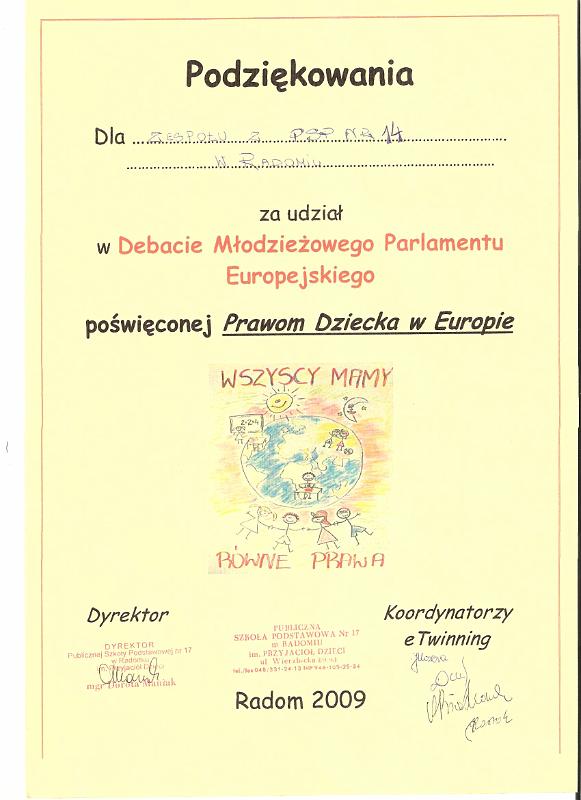 Podziękowania
Dla ZESPOŁU Z PSP NR 14
W RADOMIU
za udział
w Debacie Młodzieżowego Parlamentu
Europejskiego
poświęconej Prawom Dziecka w Europie
WSZYSCY MAMY
2+2=4
RÓWNE PRAWA
Dyrektor
Koordynatorzy
eTwinning
DYREKTOR
Publicznej Szkoły Podstawowej nr 17
w Radomiu
im. Przyjaciół Dzieci
mgr Dorota
PUBLICZNA
SZKOŁA PODSTAWOWA Nr 17
w RADOMIU
im. PRZYJACIÓŁ DZIECI
ul. Wierzbicka
tel./fax 048/331-24-13 NIP
Radom 2009